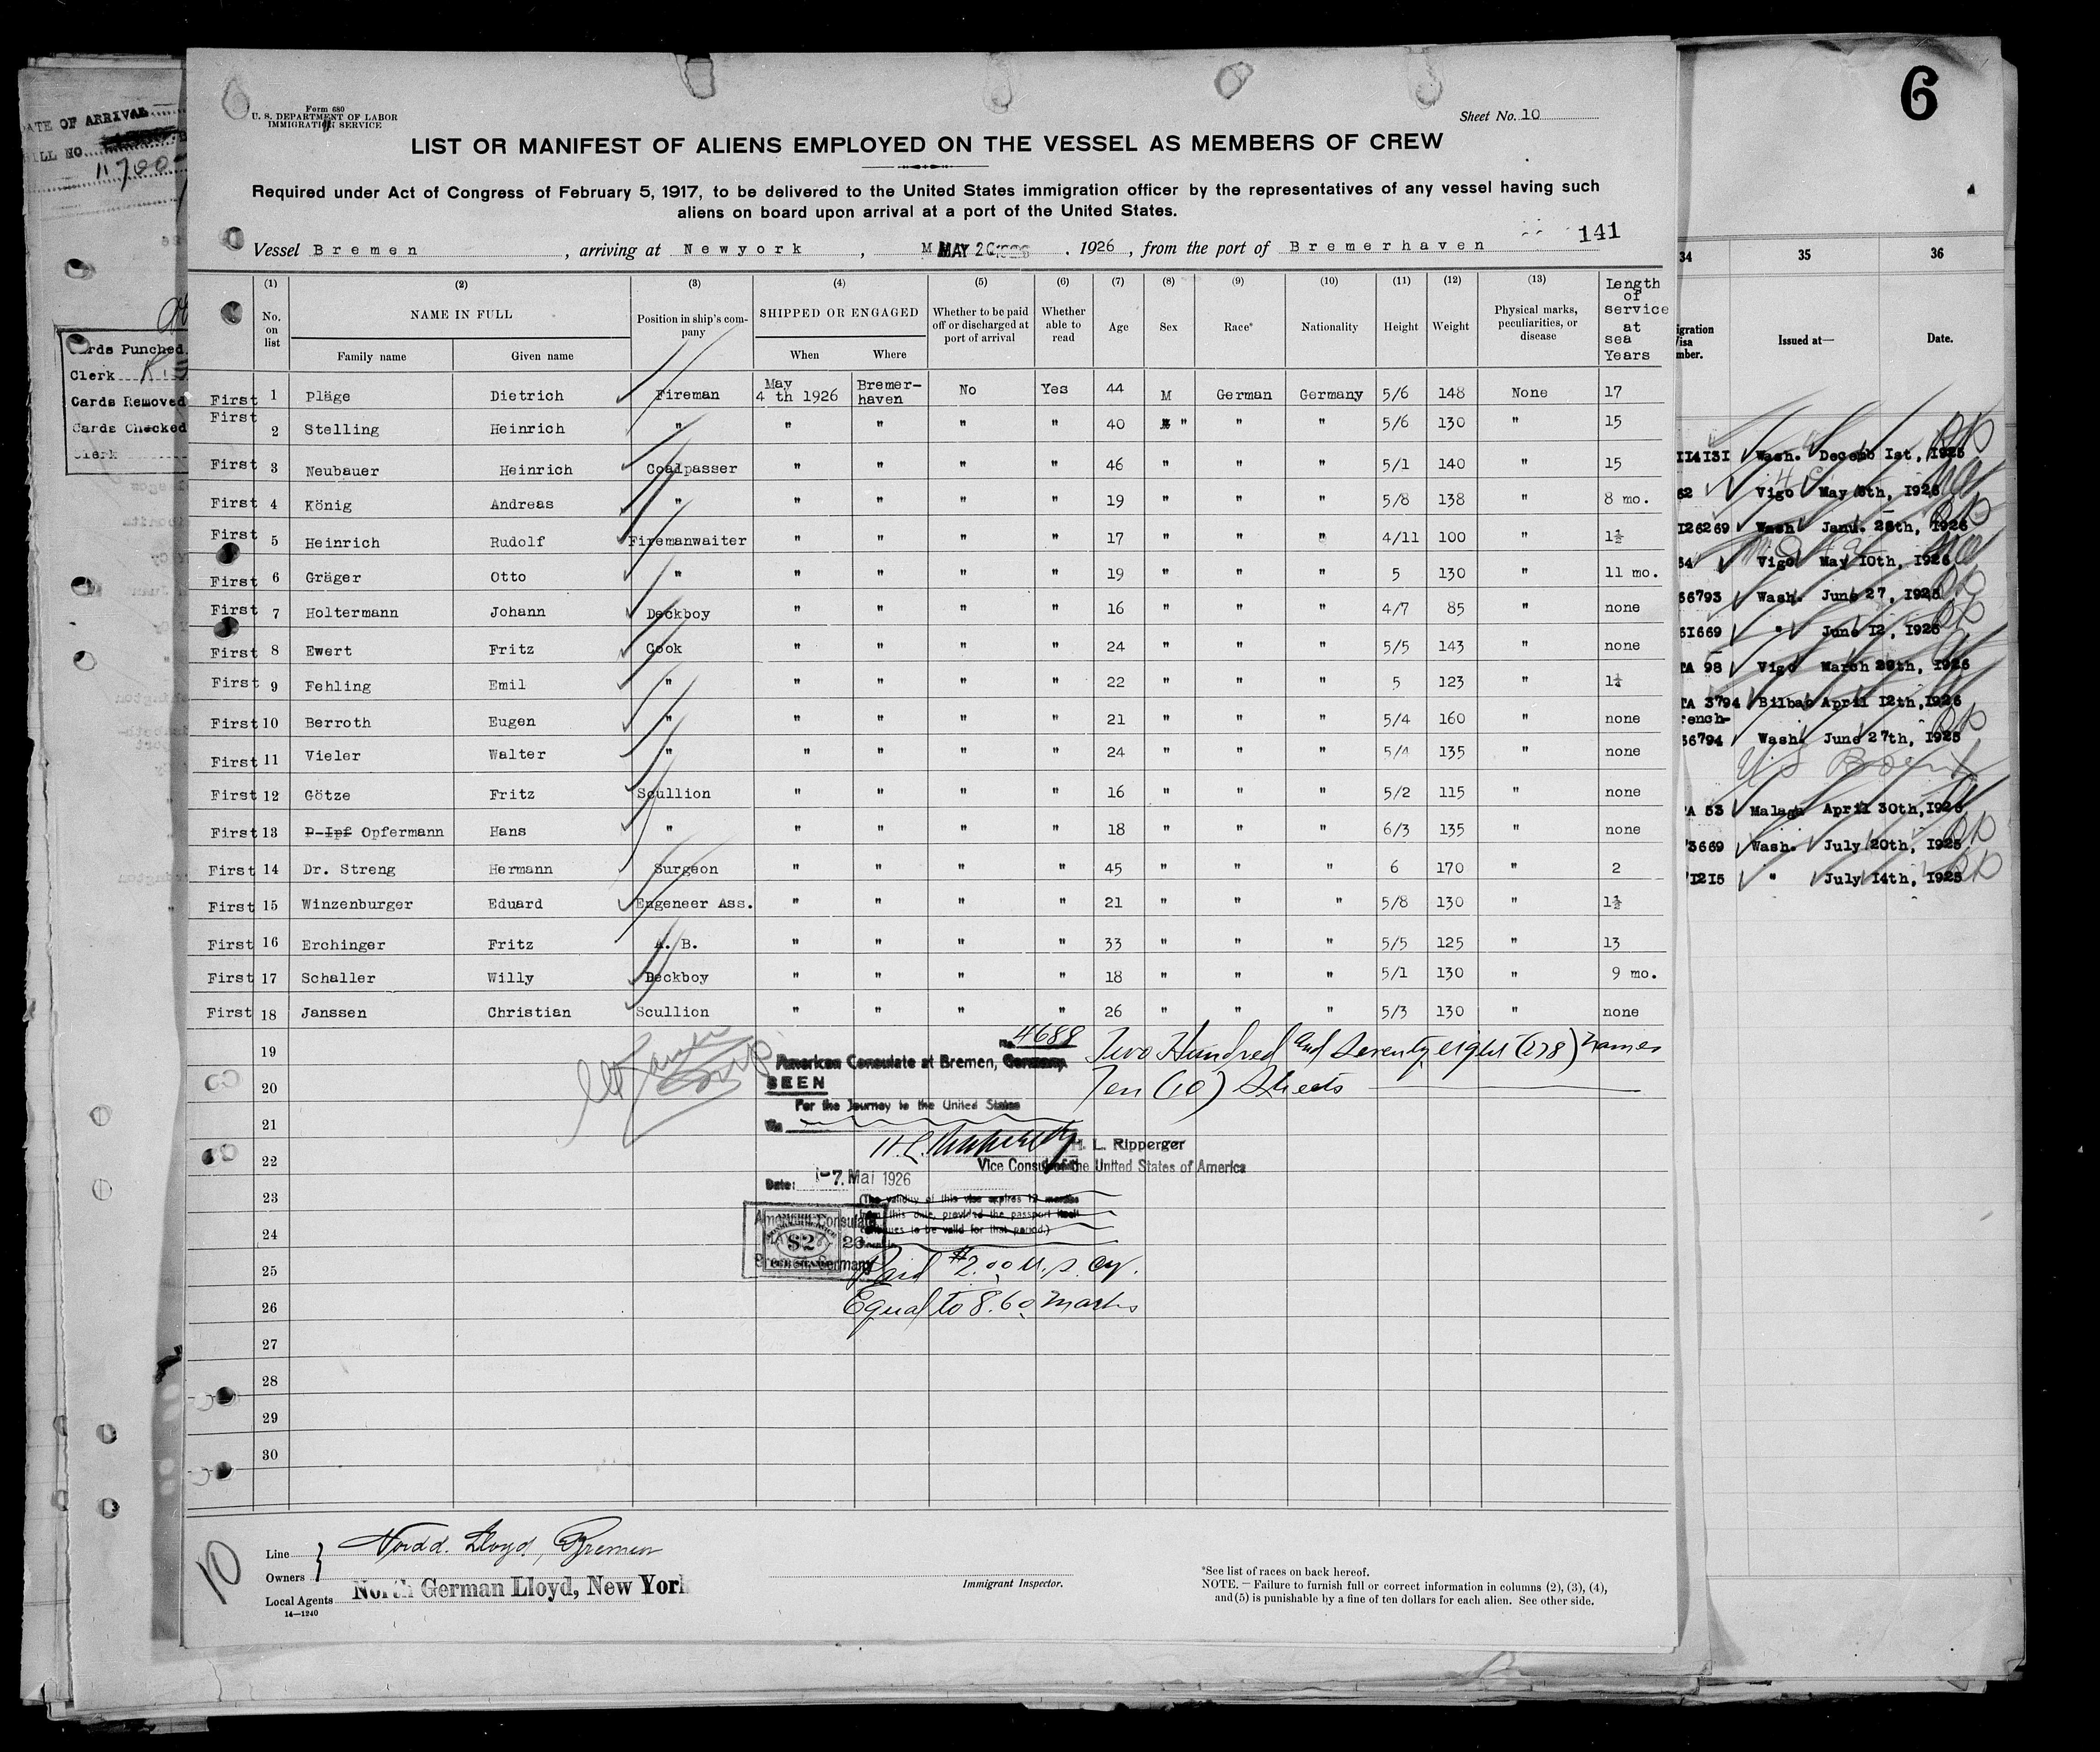 6
Form 680
U. S. DEPARTMENT OF LABOR
IMMIGRATION SERVICE
Sheet No. 10
LIST OR MANIFEST OF ALIENS EMPLOYED ON THE VESSEL AS MEMBERS OF CREW
Required under Act of Congress of February 5, 1917, to be delivered to the United States immigration officer by the representatives of any vessel having such
aliens on board upon arrival at a port of the United States.
141
Vessel Bremen, arriving at Newyork, M MAY 20 1926, 1926, from the port of Bremerhaven
(1) (2) (3) (4) (5) (6) (7) (8) (9) (10) (11) (12) (13)
No. on list NAME IN FULL Family name Given name Position in ship's company SHIPPED OR ENGAGED When Where Whether to be paid off or discharged at port of arrival Whether able to read Age Sex Race* Nationality Height Weight Physical marks, peculiarities, or disease Length of service at sea Years
First 1 Pläge Dietrich Fireman May 4 th 1926 Bremer-haven No Yes 44 M German Germany 5/6 148 None 17
First 2 Stelling Heinrich " " " " " 40 " " " 5/6 130 " 15
First 3 Neubauer Heinrich Coalpasser " " " " 46 " " " 5/1 140 " 15
First 4 König Andreas " " " " " 19 " " " 5/8 138 " 8 mo.
First 5 Heinrich Rudolf Firemanwaiter " " " " 17 " " " 4/11 100 " 1½
First 6 Gräger Otto " " " " " 19 " " " 5 130 " 11 mo.
First 7 Holtermann Johann Deckboy " " " " 16 " " " 4/7 85 " none
First 8 Ewert Fritz Cook " " " " 24 " " " 5/5 143 " none
First 9 Fehling Emil " " " " " 22 " " " 5 123 " 1¼
First 10 Berroth Eugen " " " " " 21 " " " 5/4 160 " none
First 11 Vieler Walter " " " " " 24 " " " 5/4 135 " none
First 12 Götze Fritz Scullion " " " " 16 " " " 5/2 115 " none
First 13 P-Ipf Opfermann Hans " " " " " 18 " " " 6/3 135 " none
First 14 Dr. Streng Hermann Surgeon " " " " 45 " " " 6 170 " 2
First 15 Winzenburger Eduard Engeneer Ass. " " " " 21 " " " 5/8 130 " 1½
First 16 Erchinger Fritz A. B. " " " " 33 " " " 5/5 125 " 13
First 17 Schaller Willy Deckboy " " " " 18 " " " 5/1 130 " 9 mo.
First 18 Janssen Christian Scullion " " " " 26 " " " 5/3 130 " none
19
20
21
22
23
24
25
26
27
28
29
30
No. 4688
American Consulate at Bremen, Germany
SEEN
For the Journey to the United States
Via
Two Hundred and Seventy eight (278) names
Ten (10) Sheets
H. L. Ripperger
Vice Consul of the United States of America
Date: 7. Mai 1926
(The validity of this vise expires 12 months
from this date, provided the passport itself
continues to be valid for that period.)
American Consulate
$2
Bremen, Germany
Paid $2.00 U.S. Cy.
Equal to 8.60 Marks
10
Line
Owners
Nordd. Lloyd, Bremen
Local Agents North German Lloyd, New York
14—1240
Immigrant Inspector.
*See list of races on back hereof.
NOTE.—Failure to furnish full or correct information in columns (2), (3), (4),
and (5) is punishable by a fine of ten dollars for each alien. See other side.
DATE OF ARRIVAL
BILL NO.
11700
Cards Punched
Clerk
Cards Removed
Cards Checked
Clerk
34 35 36
Issued at— Date.
114131 Wash. Decemb 1st, 1925
62 Vigo May 8th, 1926
126269 Wash Janu. 28th, 1926
64 Vigo May 10th, 1926
56793 Wash. June 27, 1925
51669 " June 12, 1925
TA 98 Vigo March 29th, 1926
TA 3794 Bilbao April 12th, 1926
rench-
56794 Wash. June 27th, 1925
US Born
TA 53 Malaga April 30th, 1926
73669 Wash. July 20th, 1925
71215 " July 14th, 1925